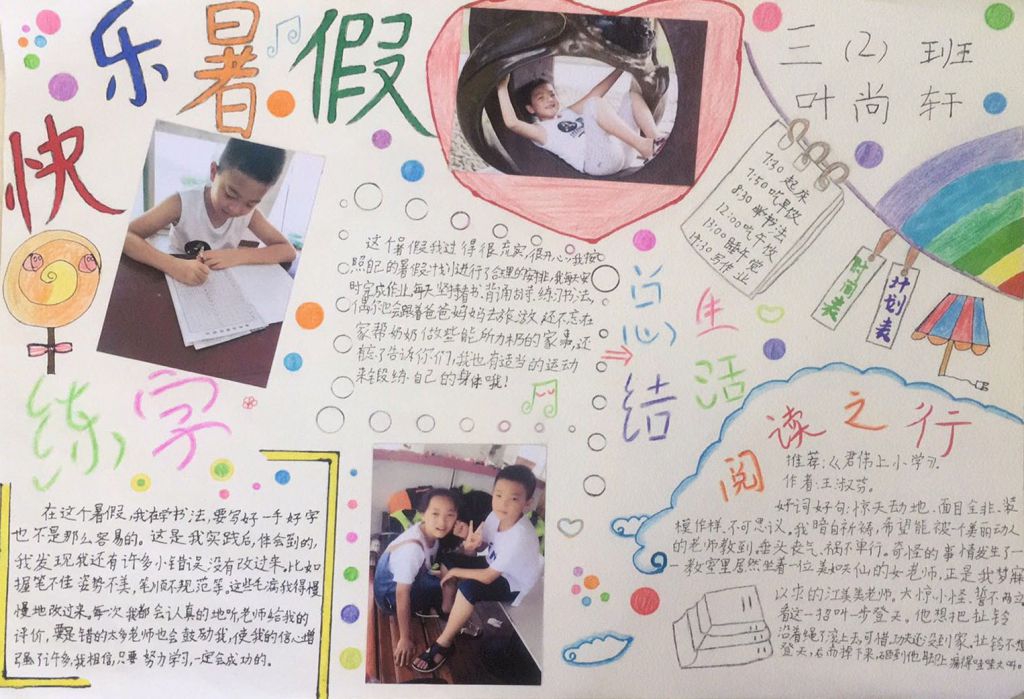 快乐暑假
三（2）班
叶尚轩
7:30 起床
7:50 吃早饭
8:30 学书法
12:00 吃午饭
13:00 睡午觉
17:30 写作业
时间表
计划表
这个暑假我过得很充实,很开心,我按
照自己的暑假计划进行了合理的安排,我每天安
时完成作业,每天坚持看书、背诵古诗、练习书法,
偶尔也会跟着爸爸妈妈去旅游,还不忘在
家帮奶奶做些能所力及的家事,还
忘了告诉你们,我也有适当的运动
来锻练自己的身体哦!
总结
生活
练字
在这个暑假,我在学书法,要写好一手好字
也不是那么容易的。这是我实践后,体会到的,
我发现我还有许多小错误没有改过来,比如
握笔不佳,姿势不美,笔顺不规范等,这些毛病我得慢
慢地改过来。每一次我都会认真的地听老师给我的
评价,要是错的太多老师也会鼓励我,使我的信心增
强了许多,我相信,只要努力学习,一定会成功的。
阅读之行
推荐:《君伟上小学》.
作者:王淑芬.
好词好句:惊天动地、面目全非、装
模作样、不可思议。我暗自祈祷,希望能被一个美丽动人
的老师教到,垂头丧气、祸不单行。奇怪的事情发生了一
教室里居然坐着一位美如天仙的女老师,正是我梦寐
以求的江美美老师,大惊小怪、誓不两立
看这一招叫一步登天。他想把扯铃
沿着绳子滚上去,可惜功夫还没到家,扯铃不想
登天,反而掉下来,砸到他
痛得哇哇大叫。